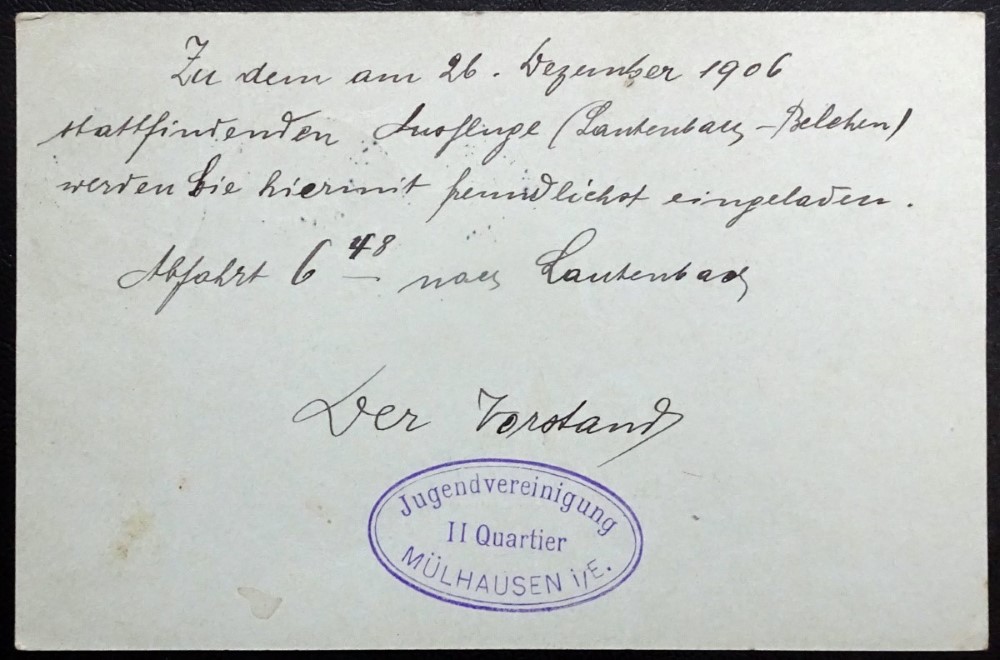 Zu dem am 26. Dezember 1906
stattfindenden Ausfluge (Lautenbach-Belchen)
werden Sie hiermit freundlichst eingeladen.
Abfahrt 6 48 nach Lautenbach
Der Vorstand
Jugendvereinigung
II Quartier
MÜLHAUSEN i/E.